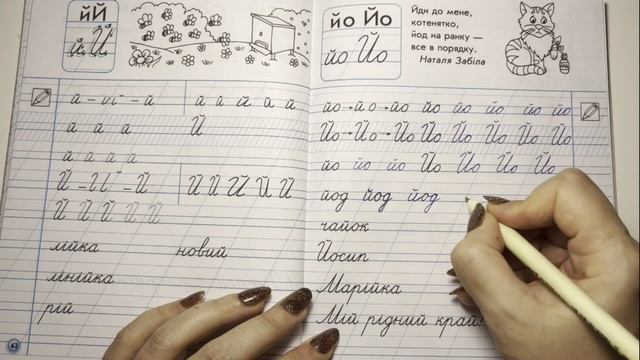 йЙ
й Й
й – й
й й й й й
й й й
Й
й й й й
Й – Й
Й Й Й Й Й
Й Й Й Й Й
мийка
новий
лінійка
рій
42
йо Йо
йо Йо
Йди до мене,
котенятко,
йод на ранку —
все в порядку.
Наталя Забіла
йо йо йо йо йо йо йо йо
Йо Йо Йо Йо Йо Йо Йо Йо
йо йо йо Йо Йо Йо Йо
йод йод йод
чайок
Йосип
Марійка
Мій рідний край